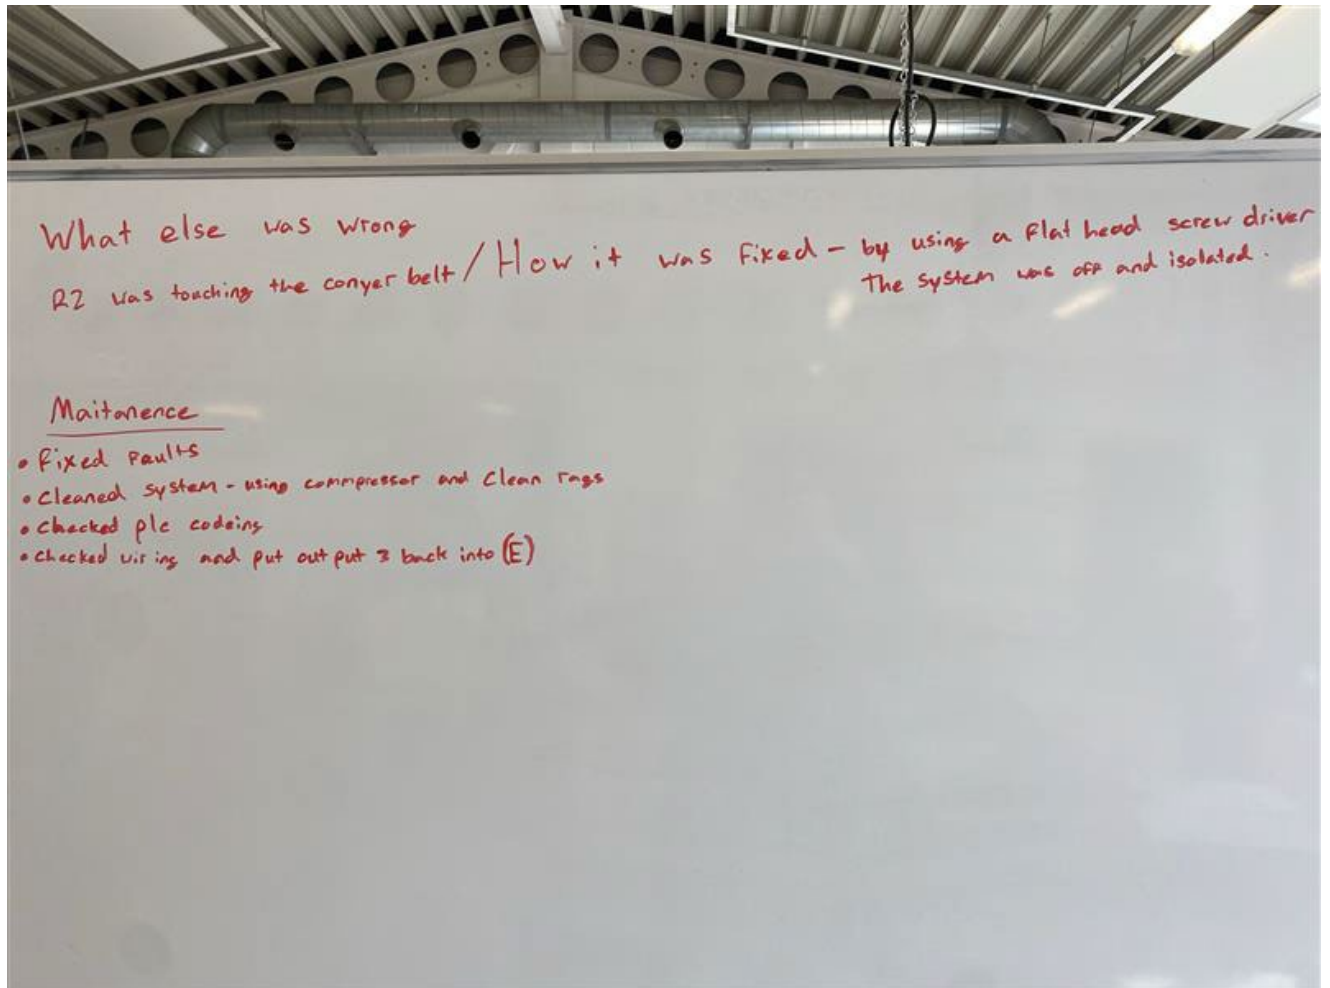 What else was wrong
R2 was touching the conyer belt / How it was fixed - by using a flat head screw driver
The system was off and isolated.
Maitanence
• Fixed faults
• Cleaned system - using commpressor and Clean rags
• Checked plc codeing
• Checked wiring and put out put 3 back into (E)